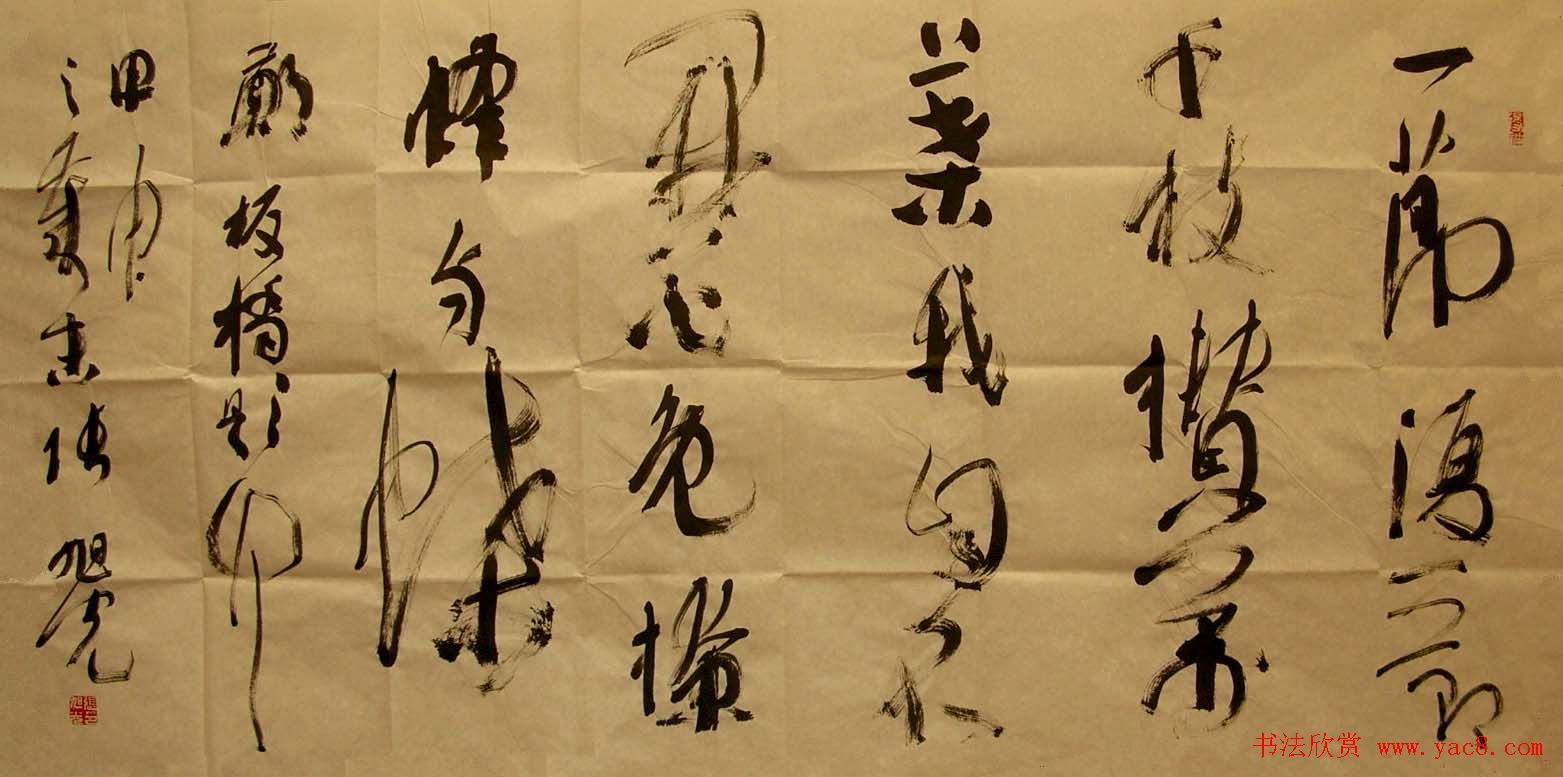 一節復一節
千枝攢萬
葉我自不
開花免撩
蜂与蝶
鄭板橋題
甲申
之夏張旭光
书法欣赏 www.yac8.com